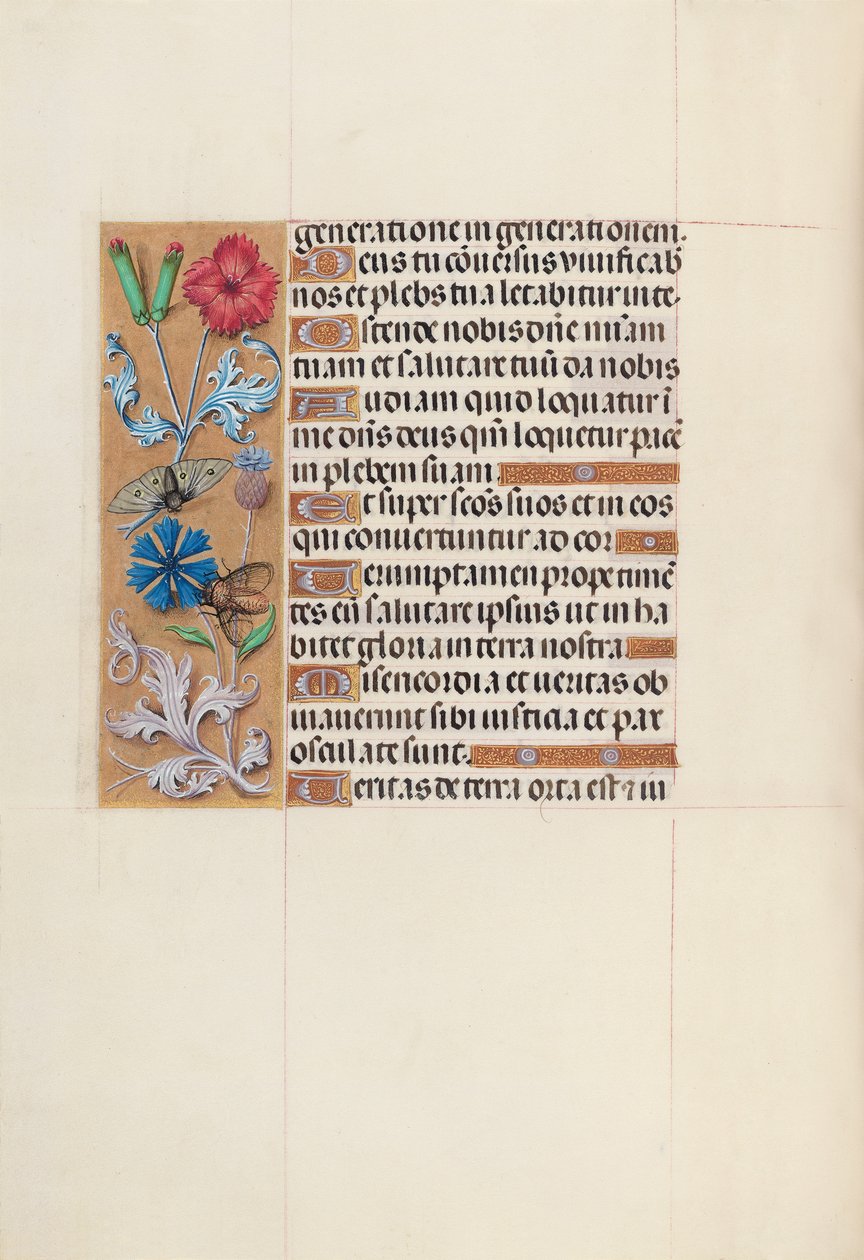 generatione in generationem.
Deus tu cōuersus viuificab̄
nos et plebs tua letabitur in te.
Ostende nobis dn̄e mīam
tuam et salutare tuū da nobis
Audiam quid loquatur ī
me dn̄s deus qm̄ loquetur pacē
in plebem suam.
Et super scōs suos et in eos
qui conuertuntur ad cor
Uerumptamen prope timē
tes eū salutare ipsius ut inha
bitet gloria in terra nostra.
Misericordia et ueritas ob
uiauerunt sibi iusticia et pax
osculate sunt.
Ueritas de terra orta est ⁊ iu